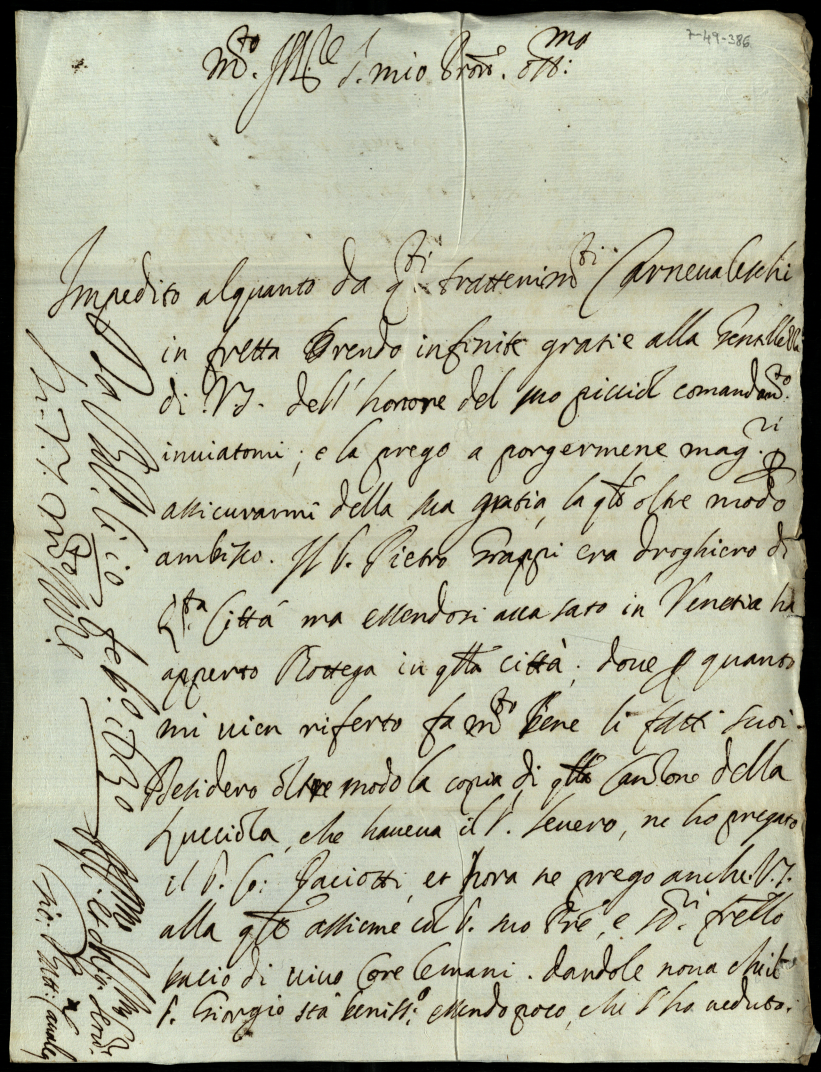 7-49-386
m.to Ill.re S.r mio Pron. oss.mo
Impedito alquanto da q.ti trattenim.ti Carnevaleschi
in fretta Prendo infinite gratie alla
di V.S. dell' honore del suo picciol comandam.to
inviatomi; e la prego a porgermene mag.ri p
assicurarmi della sua gratia, la qle oltre modo
ambisco. Il S. Pietro Grappi era droghiero di
q.ta Città ma essendosi accasato in Venetia ha
apperto Bottega in qlla città; dove p quanto
mi vien riferto fa m.to bene li fatti suoi.
Desidero oltre modo la copia di qlla Canzone della
Lucciola, che haveva il S. Severo, ne ho pregato
il S. C: Paciotti, et hora ne prego anche V.S.
alla qle assieme col S. suo Pre, e fretto
bacio di vivo Core le mani. dandole nova che il
S. Giorgio stà beniss.o, essendo poco, che l'ho veduto.
li 10 feb.o 1630
D. V.S. m.to Ill.re